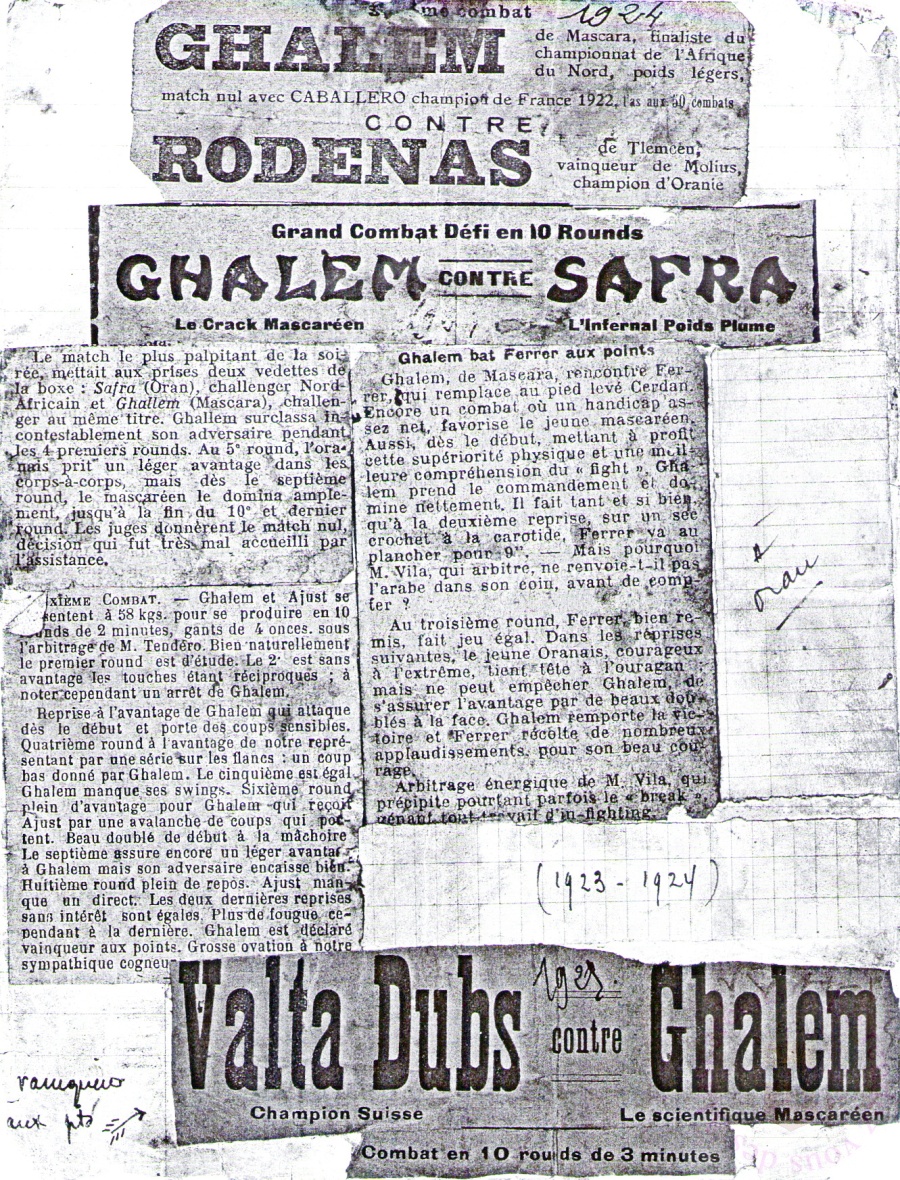 me combat
1924
GHALEM
de Mascara, finaliste du
championnat de l'Afrique
du Nord, poids légers,
match nul avec CABALLERO champion de France 1922, l'as aux 50 combats
CONTRE
RODENAS
de Tlemcen,
vainqueur de Molius,
champion d'Oranie
Grand Combat Défi en 10 Rounds
GHALEM CONTRE SAFRA
Le Crack Mascaréen
L'Infernal Poids Plume
Le match le plus palpitant de la soi-
rée, mettait aux prises deux vedettes de
la boxe : Safra (Oran), challenger Nord-
Africain et Ghallem (Mascara), challen-
ger au même titre. Ghallem surclassa in-
contestablement son adversaire pendant
les 4 premiers rounds. Au 5e round, l'ora-
nais prit un léger avantage dans les
corps-à-corps, mais dès le septième
round, le mascaréen le domina ample-
ment, jusqu'à la fin du 10e et dernier
round. Les juges donnèrent le match nul,
décision qui fut très mal accueilli par
l'assistance.
IXIÈME COMBAT. — Ghalem et Ajust se
sentent à 58 kgs. pour se produire en 10
nds de 2 minutes, gants de 4 onces. sous
l'arbitrage de M. Tendéro. Bien naturellement
le premier round est d'étude. Le 2e est sans
avantage les touches étant réciproques ; à
noter cependant un arrêt de Ghalem.
Reprise à l'avantage de Ghalem qui attaque
dès le début et porte des coups sensibles.
Quatrième round à l'avantage de notre repré-
sentant par une série sur les flancs : un coup
bas donné par Ghalem. Le cinquième est égal
Ghalem manque ses swings. Sixième round
plein d'avantage pour Ghalem qui reçoit
Ajust par une avalanche de coups qui por-
tent. Beau doublé de début à la mâchoire
Le septième assure encore un léger avantage
à Ghalem mais son adversaire encaisse bien.
Huitième round plein de repos. Ajust man-
que un direct. Les deux dernières reprises
sans intérêt sont égales. Plus de fougue ce-
pendant à la dernière. Ghalem est déclaré
vainqueur aux points. Grosse ovation à notre
sympathique cogneu-
Ghalem bat Ferrer aux points
Ghalem, de Mascara, rencontre Fer-
rer, qui remplace au pied levé Cerdan.
Encore un combat où un handicap as-
sez net, favorise le jeune mascaréen.
Aussi, dès le début, mettant à profit
cette supériorité physique et une meil-
leure compréhension du « fight ». Gha-
lem prend le commandement et do-
mine nettement. Il fait tant et si bien
qu'à la deuxième reprise, sur un sec
crochet à la carotide, Ferrer va au
plancher pour 9". — Mais pourquoi
M. Vila, qui arbitre, ne renvoie-t-il pas
l'arabe dans son coin, avant de comp-
ter ?
Au troisième round, Ferrer, bien re-
mis, fait jeu égal. Dans les reprises
suivantes, le jeune Oranais, courageux
à l'extrême, tient tête à l'ouragan ;
mais ne peut empêcher Ghalem, de
s'assurer l'avantage par de beaux dou-
blés à la face. Ghalem remporte la vic-
toire et Ferrer récolte de nombreux
applaudissements, pour son beau cou-
rage.
Arbitrage énergique de M. Vila, qui
précipite pourtant parfois le « break »,
gênant tout travail d'in-fighting.
à
oran
(1923 - 1924)
Valta Dubs contre Ghalem
Champion Suisse
Le scientifique Mascaréen
vainqueur
aux pts
Combat en 10 rounds de 3 minutes